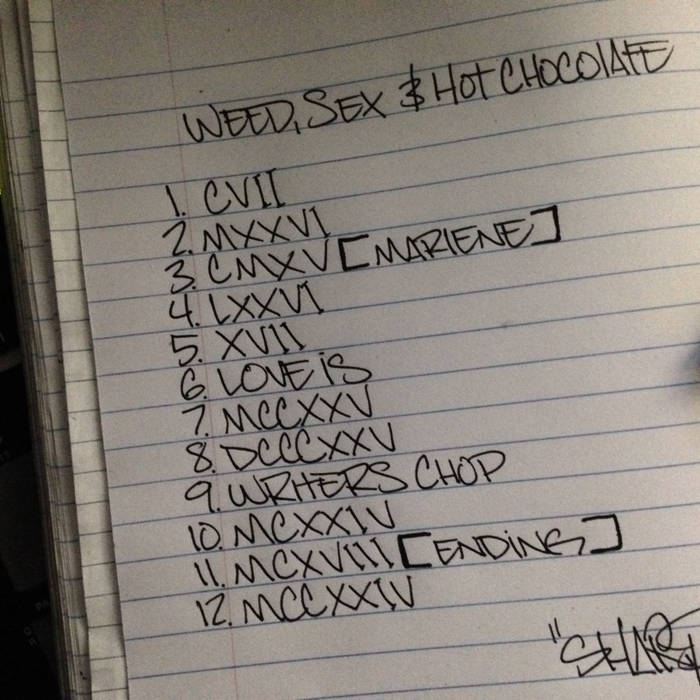 WEED, SEX & HOT CHOCOLATE
1. CVII
2. MXXVI
3. CMXV [MARLENE]
4. LXXVI
5. XVII
6. LOVE iS
7. MCCXXV
8. DCCCXXV
9. WRITERS CHOP
10. MCXXIV
11. MCXVIII [ENDiNG]
12. MCCXXIV